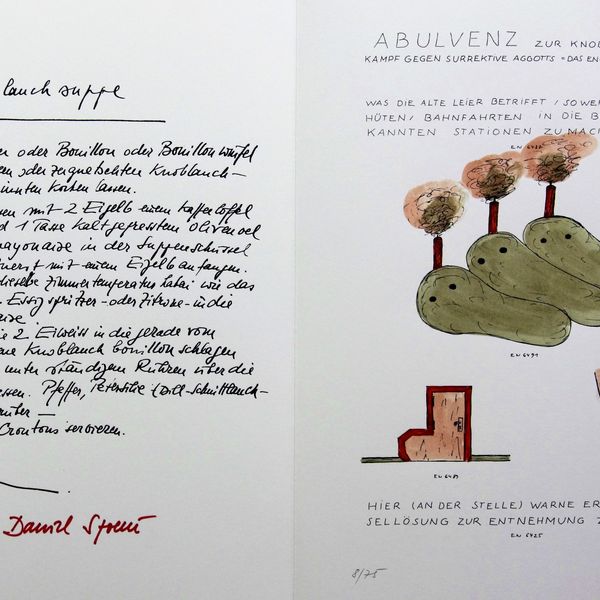 lauchsuppe
er oder Bouillon oder Bouillonwürfel
en oder zerquetschten Knoblauch-
inuten kochen lassen.
en mit 2 Eigelb einem Kaffeelöffel
d 1 Tasse kaltgepresstem Olivenoel
mayonaise in der Suppenschüssel
mit einem Eigelb anfangen.
dieselbe Zimmertemperatur haben wie das
Essigspritzer- oder Zitrone- in die
aise.
ie 2 Eiweiss in die gerade vom
ene Knoblauchbouillon schlagen
unter ständigem Rühren über die
essen. Pfeffer, Petersilie (Dill-Schnittlauch-
rüber —
Croutons servieren.
Daniel Spoerri
ABULVENZ ZUR KNOB
KAMPF GEGEN SURREKTIVE AGGOTTS »DAS EN
WAS DIE ALTE LEIER BETRIFFT / SO WER
HÜTEN / BAHNFAHRTEN IN DIE B
KANNTEN STATIONEN ZU MACH
EN 6491
EN 6489
HIER (AN DER STELLE) WARNE ER
SELLÖSUNG ZUR ENTNEHMUNG Z
EN 6425
8/75